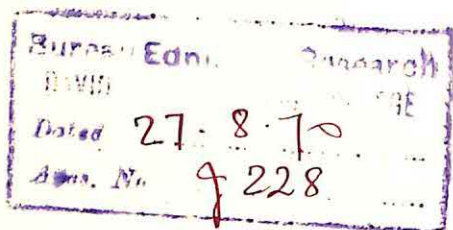 Bureau Ednl. Research
DAVID
Dated 27.8.70
Accs. No 9228